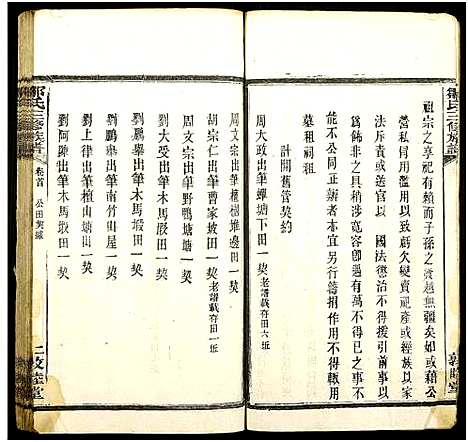 鄒氏三修族譜
祖宗之享祀有賴而子孫之發越無疆矣如或藉公
營私耳用濫觴以致虧欠變賣祀產或經族以家
法斥責或送官以 國法懲治不得援引前事
爲飾非之具稍涉寬容卽遇有萬不得已之事不
能不公同正辦者亦宜另行籌措作用不得輒用
墓租祠租
計開舊管契約
周大政出筆蟬塘下田一契老譜載存田六坵
敦睦堂
周文 出筆檀樹堆邊田一契
胡宗仁出筆曹家坡田一契老譜載存田一坵
周文 出筆野鴨塘塘一契
劉大受出筆木馬塅田一契
劉鵬舉出筆木馬塅田一契
劉 出筆南竹山屋一契
劉上 出筆檀山塘一契
劉阿陳出筆木馬塅田一契
鄒氏三修族譜
卷首 公田契據
二敦睦堂